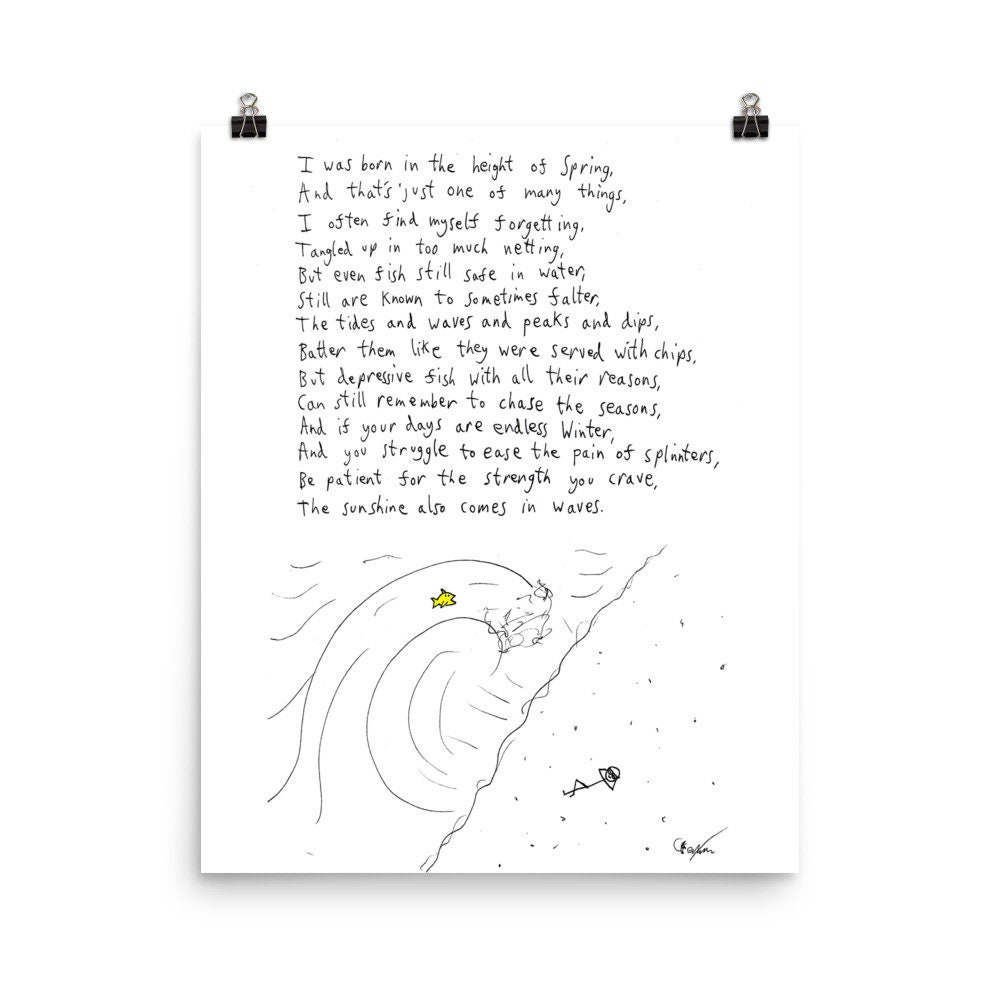 I was born in the height of Spring,
And that's just one of many things,
I often find myself forgetting,
Tangled up in too much netting,
But even fish still safe in water,
Still are known to sometimes falter,
The tides and waves and peaks and dips,
Batter them like they were served with chips,
But depressive fish with all their reasons,
Can still remember to chase the seasons,
And if your days are endless Winter,
And you struggle to ease the pain of splinters,
Be patient for the strength you crave,
The sunshine also comes in waves.